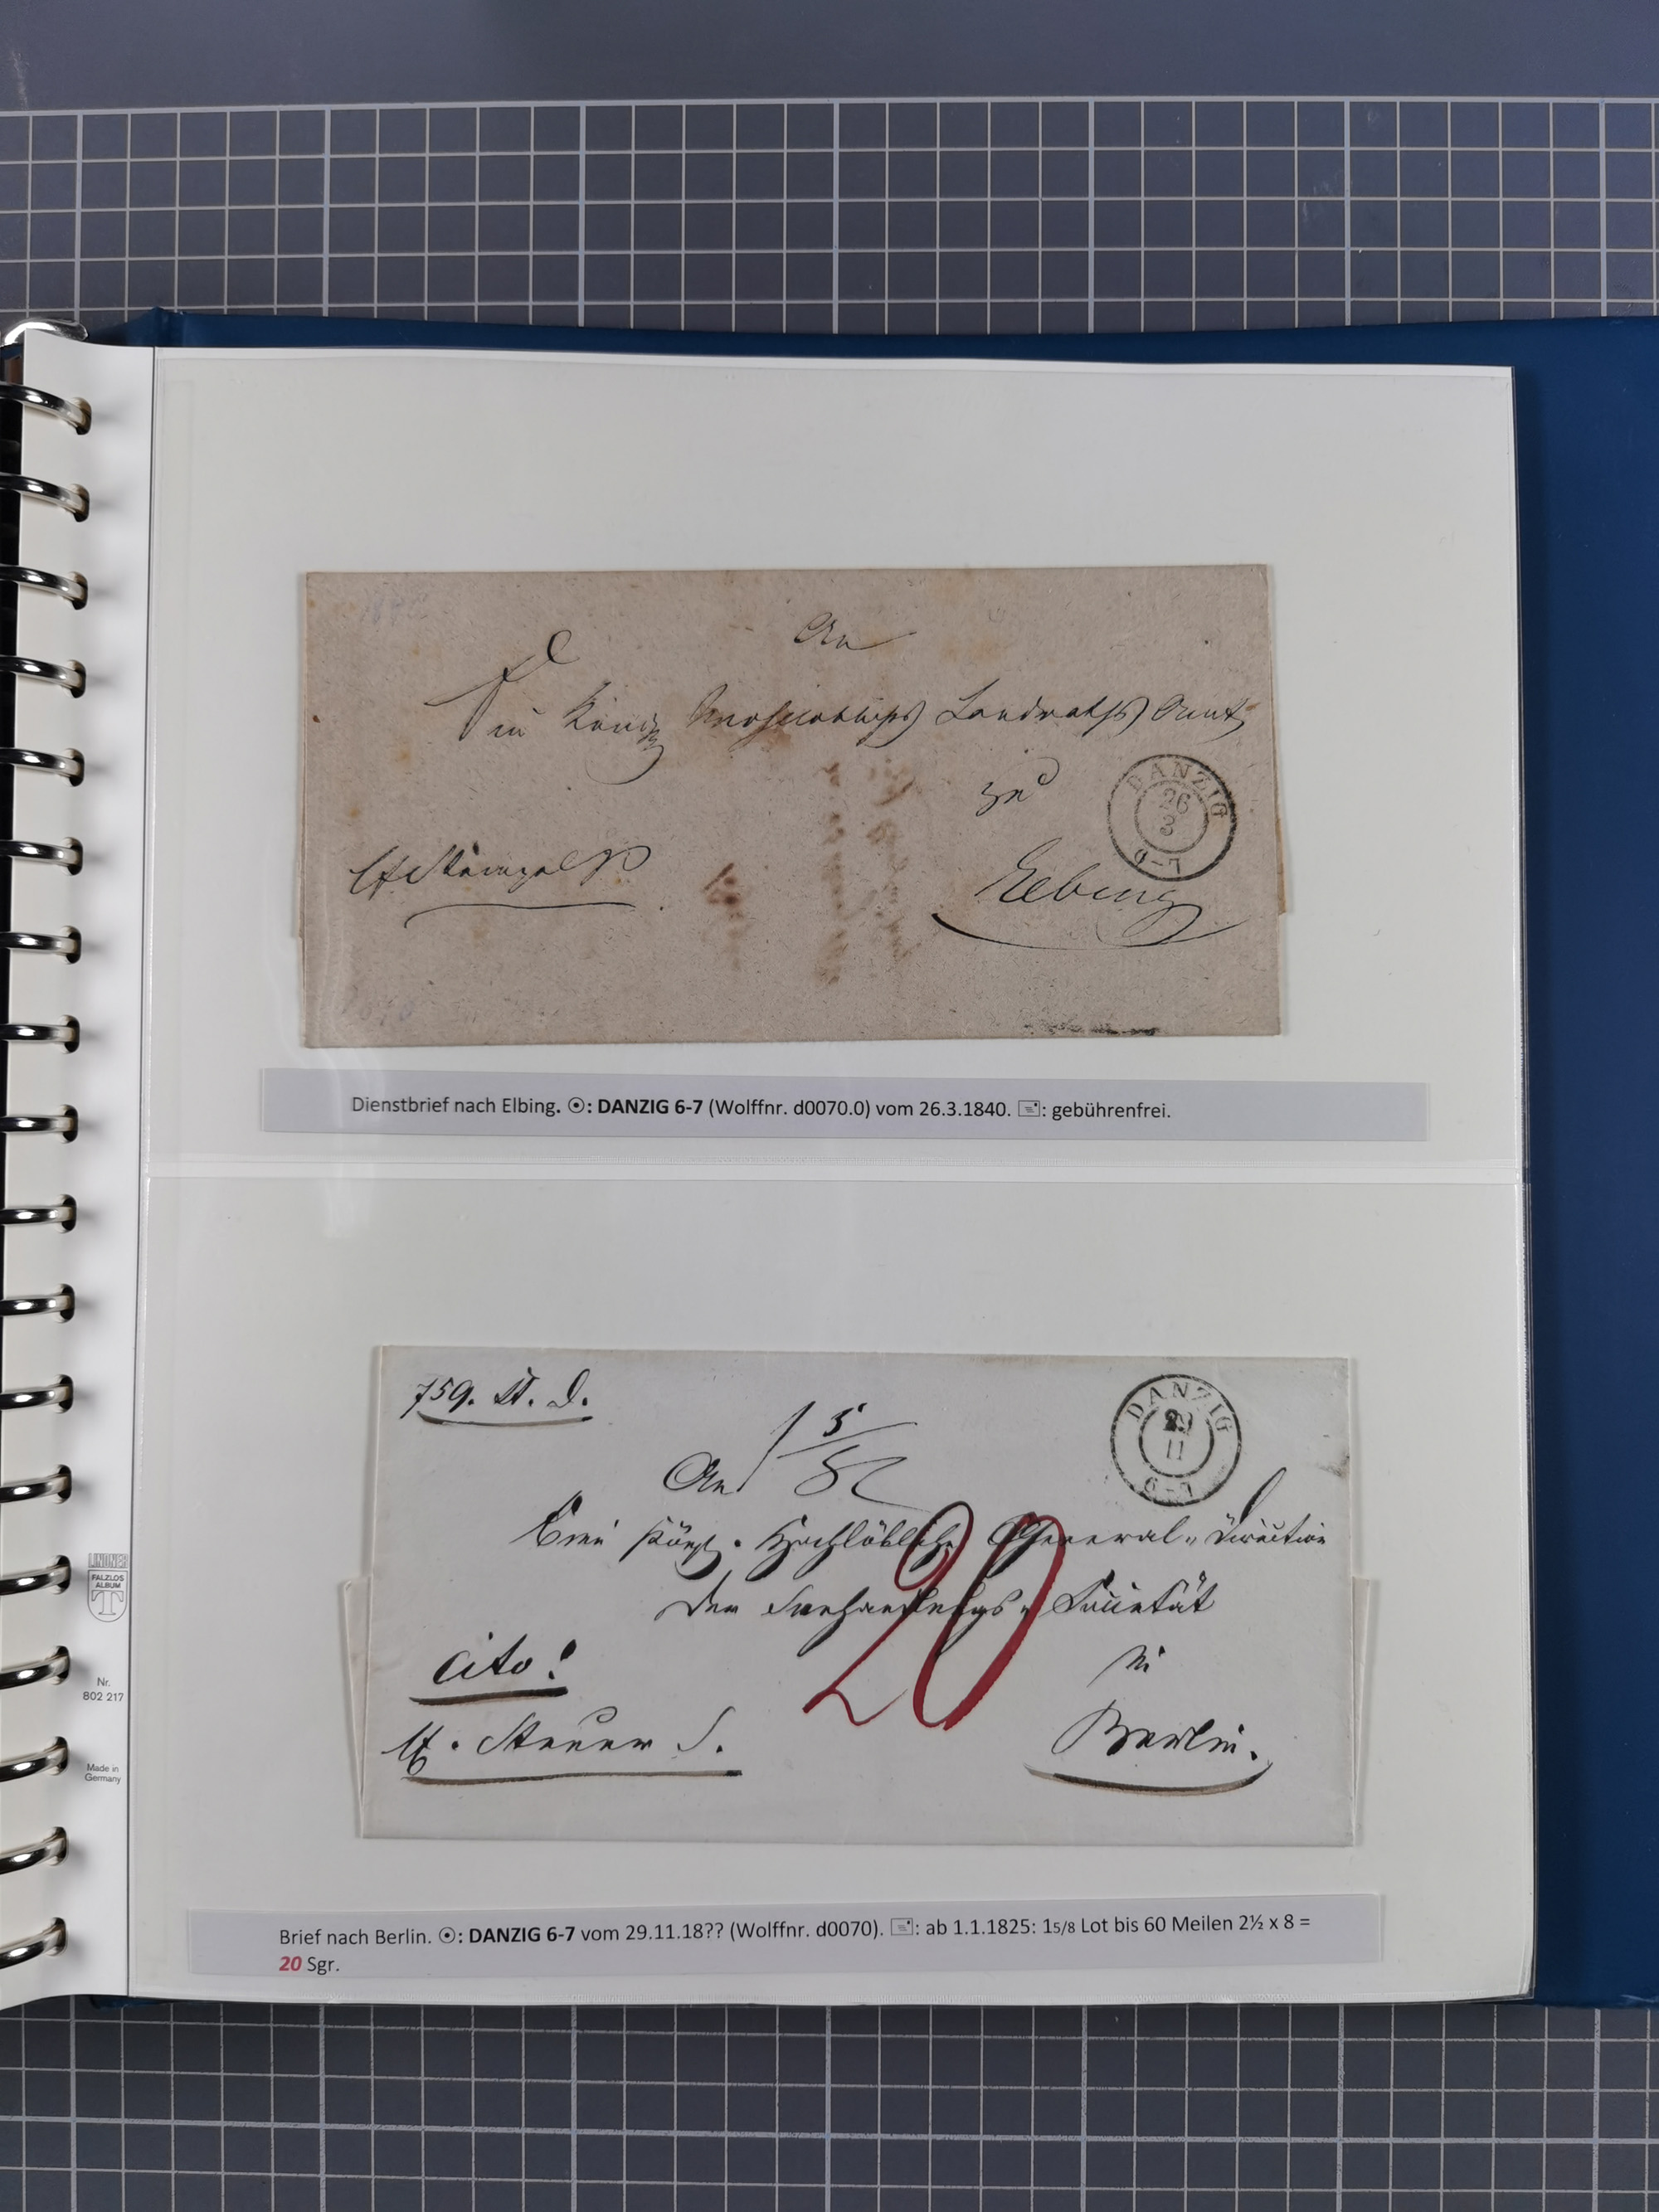 An
Ein Königl. Landraths Amt
zu
DANZIG
26
3
6-7
Elbing
Dienstbrief nach Elbing. ☉: DANZIG 6-7 (Wolffnr. d0070.0) vom 26.3.1840. 🖃: gebührenfrei.
759. St. D.
1 5/8 L
DANZIG
29
11
6-7
An
Eine Königl. Hochlöbliche General-Direction
der Seehandlungs-Societät
cito!
in
Berlin.
Brief nach Berlin. ☉: DANZIG 6-7 vom 29.11.18?? (Wolffnr. d0070). 🖃: ab 1.1.1825: 15/8 Lot bis 60 Meilen 2½ x 8 =
20 Sgr.
20
LINDNER
FALZLOS
ALBUM
T
Nr.
802 217
Made in
Germany